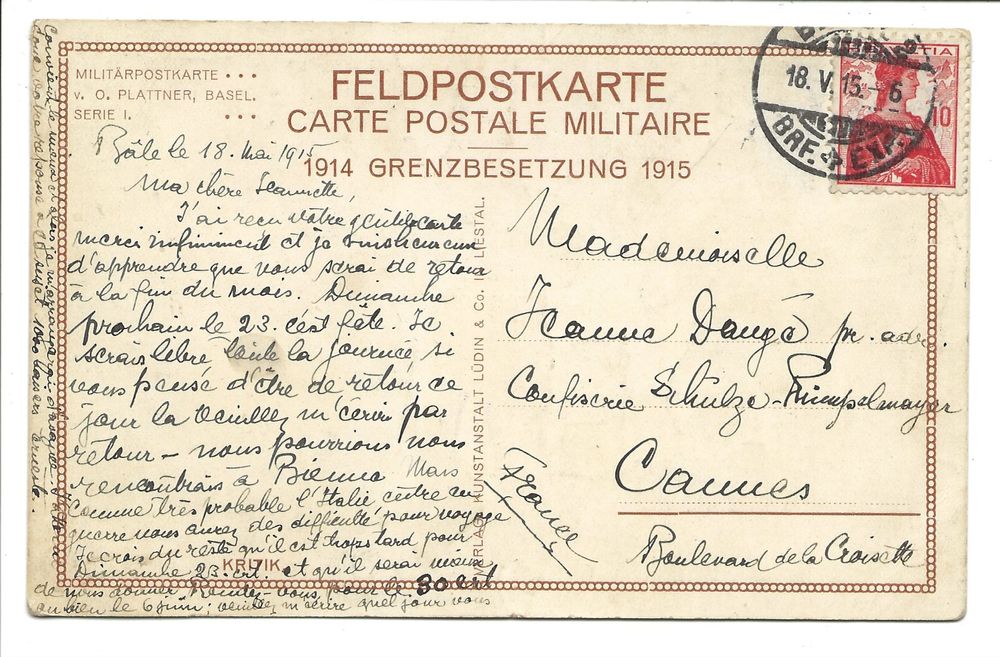 MILITÄRPOSTKARTE • • •
v. O. PLATTNER, BASEL.
SERIE I.
FELDPOSTKARTE
CARTE POSTALE MILITAIRE
1914 GRENZBESETZUNG 1915
18. V. 15. - 6
BRF. EXP.
10
Bâle le 18. Mai 1915
Ma chère Jeannette,
J'ai reçu votre gentille carte
merci infiniment et je
d'apprendre que vous serai de retour
à la fin du mois. Dimanche
prochain le 23. c'est fête. Je
serais libre toute la journée si
vous pensé d'être de retour ce
jour la veuillez m'écrire par
retour – nous pourrions nous
rencontrais à Bienne Mais
comme très probable l'Italie entre en
guerre vous aurez des difficulté pour voyage
Je crois du reste qu'il est trops tard pour
Dimanche 23. crt. et qu'il serai mieux
de nous donner Rendez-vous pour le 30 crt
ou bien le 6 juin; veuillez m'écrire quel jour vous
convient le mieux et alors je
votre réponse 1000 baisers Ernest.
KRIZIK
VERLAG: KUNSTANSTALT LÜDIN & Co. IN LIESTAL.
Mademoiselle
Jeanne Daugé pr. adr.
Confiserie Schulze-Rumpelmayer
Cannes
France
Boulevard de la Croisette